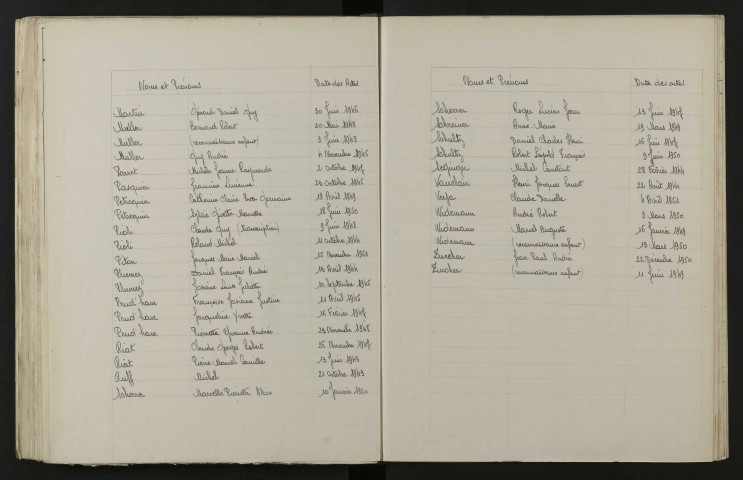 Noms et Prénoms Date des Actes
Martin Gérard Daniel Guy 30 Juin 1946
Muller Bernard Robert 20 Mai 1948
Muller (reconnaissance enfant) 9 Juin 1948
Muller Guy André 4 Novembre 1945
Michèle Jeanne Raymonde 2 Octobre 1945
Pasquier Jeannine Lucienne Octobre 1945
Petiequin Catherine Claire Germaine 18 Avril 1949
Petiequin Sylvie Marcelle 18 Juin 1950
Pioli Claude Guy (transcription) 9 Juin 1948
Pioli Roland Michel 11 Octobre 1944
Piton Jacques Marie Marcel 25 Novembre 1951
Daniel François André 10 Avril 1944
Josiane Juliette 10 Septembre 1945
Prud'hon Françoise Josiane Justine 11 Avril 1945
Prud'hon Jacqueline Yvette 16 Février 1945
Prud'hon Pierrette Yvonne Andrée 29 Novembre 1945
Riat Claude Georges Robert 25 Novembre 1945
Riat Pierre Marcel Camille 13 Juin 1949
Ruff Michel 21 Octobre 1943
Scherrer Marcelle Pierrette 10 Janvier 1950
Noms et Prénoms Date des actes
Scherrer Roger Lucien Jean 19 Juin 1945
Schreiner Anne Marie 19 Mars 1949
Schultz Daniel Charles Henri 16 Juin 1945
Schultz Robert Léopold François 9 Juin 1950
Michel Constant 28 Février 1944
Henri Jacques Ernest 22 Août 1944
Claude Danielle 4 Avril 1951
Widemann André Robert 3 Mars 1950
Widemann Marcel Auguste 16 Janvier 1949
Widemann (reconnaissance enfant) 19 Mars 1950
Zurcher Jean Paul André 22 Décembre 1950
Zurcher (reconnaissance enfant) 11 Juin 1949